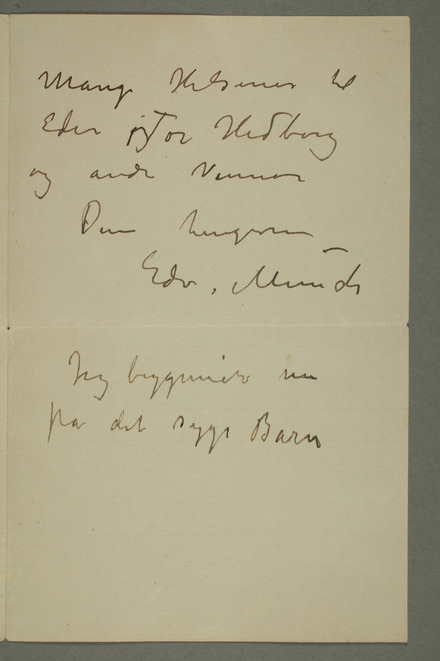 Mange Hilsener til
Eder og Tor Hedberg
og andre Venner
Din hengivne
Edv. Munch
Jeg begynner nu
på det syge Barn